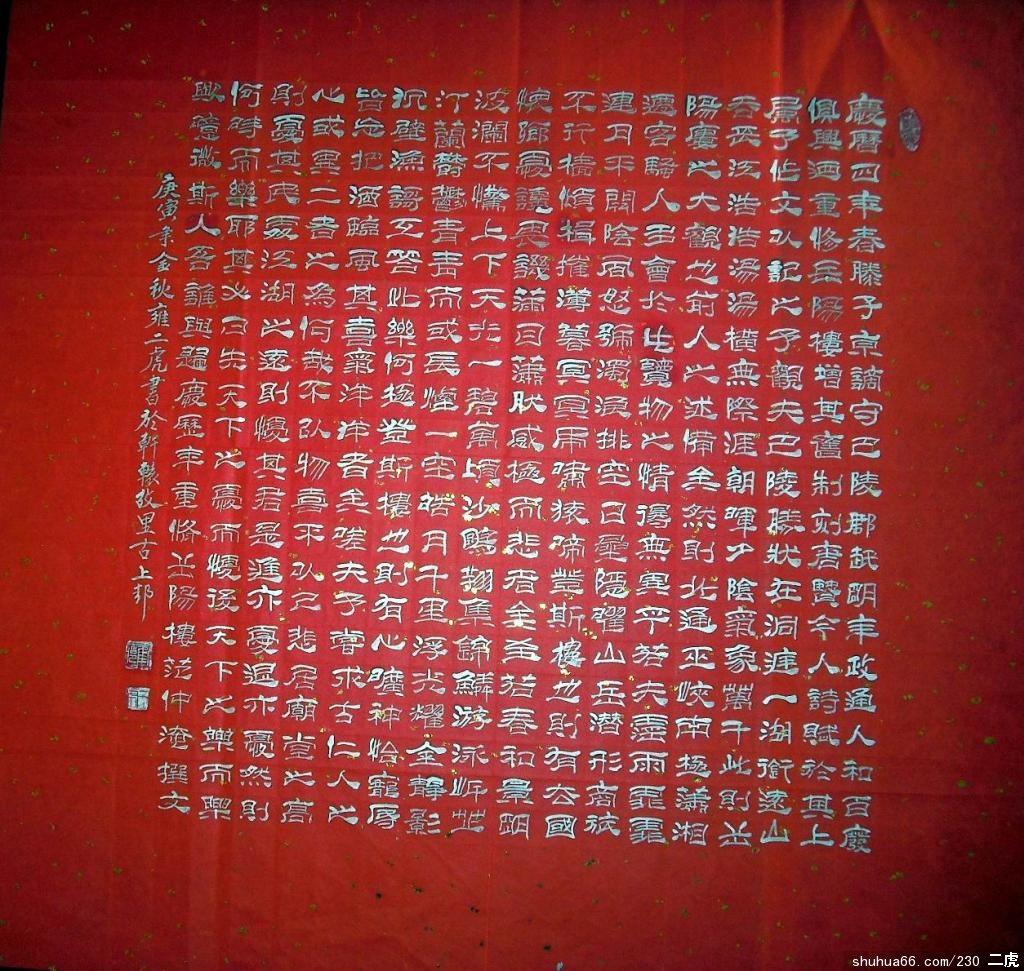 慶曆四年春滕子京謫守巴陵郡越明年政通人和百廢
俱興迺重修岳陽樓增其舊制刻唐賢今人詩賦於其上
屬予作文以記之予觀夫巴陵勝狀在洞庭一湖銜遠山
吞長江浩浩湯湯橫無際涯朝暉夕陰氣象萬千此則岳
陽樓之大觀也前人之述備矣然則北通巫峽南極瀟湘
遷客騷人多會於此覽物之情得無異乎若夫霪雨霏霏
連月不開陰風怒號濁浪排空日星隱耀山岳潛形商旅
不行檣傾楫摧薄暮冥冥虎嘯猿啼登斯樓也則有去國
懷鄉憂讒畏譏滿目蕭然感極而悲者矣至若春和景明
波瀾不驚上下天光一碧萬頃沙鷗翔集錦鱗游泳岸芷
汀蘭鬱鬱青青而或長煙一空皓月千里浮光耀金靜影
沉璧漁歌互答此樂何極登斯樓也則有心曠神怡寵辱
皆忘把酒臨風其喜氣洋洋者矣嗟夫予嘗求古仁人之
心或異二者之為何哉不以物喜不以己悲居廟堂之高
則憂其民處江湖之遠則憂其君是進亦憂退亦憂然則
何時而樂耶其必曰先天下之憂而憂後天下之樂而樂
歟噫微斯人吾誰與歸慶歷年重修岳陽樓范仲淹撰文
庚寅年金秋雍二虎書於軒轅故里古上邽
shuhua66.com/230 二虎